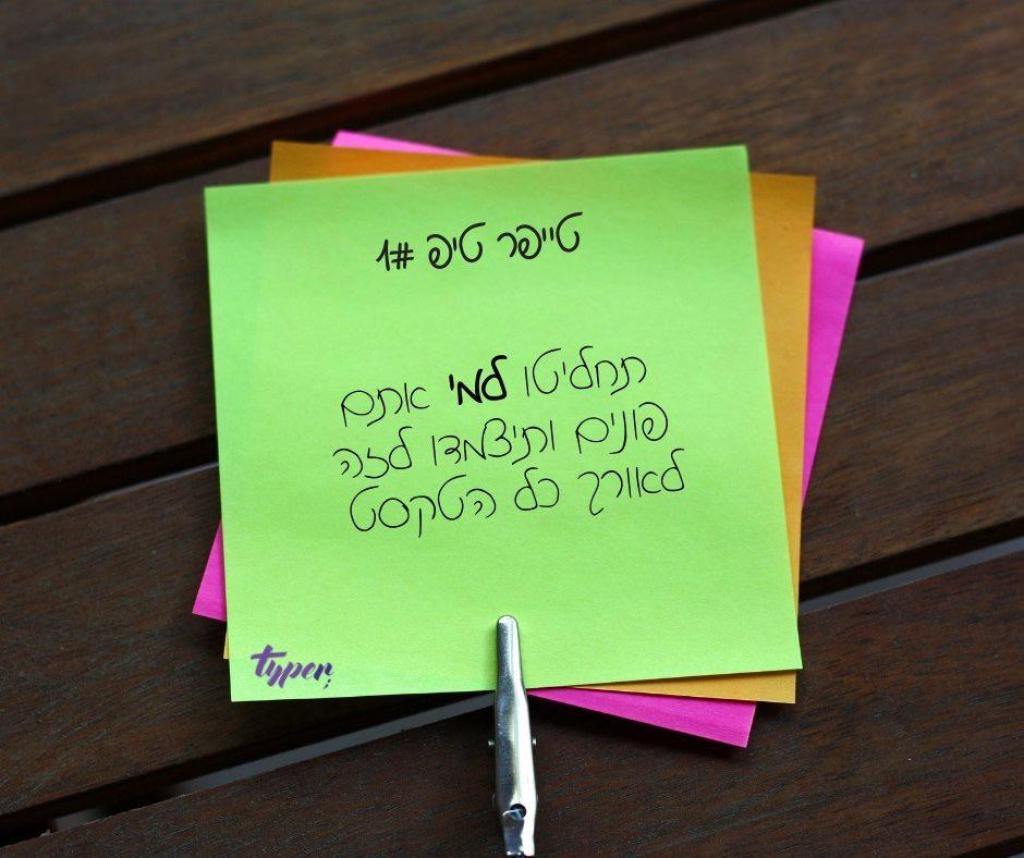 טייפר טיפ #1
תחליטו למי אתם
פונים ותיצמדו לזה
לאורך כל הטקסט
typer;